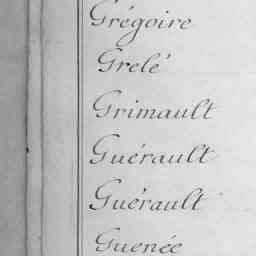 Grégoire
Grelé
Grimault
Guérault
Guérault
Guenée